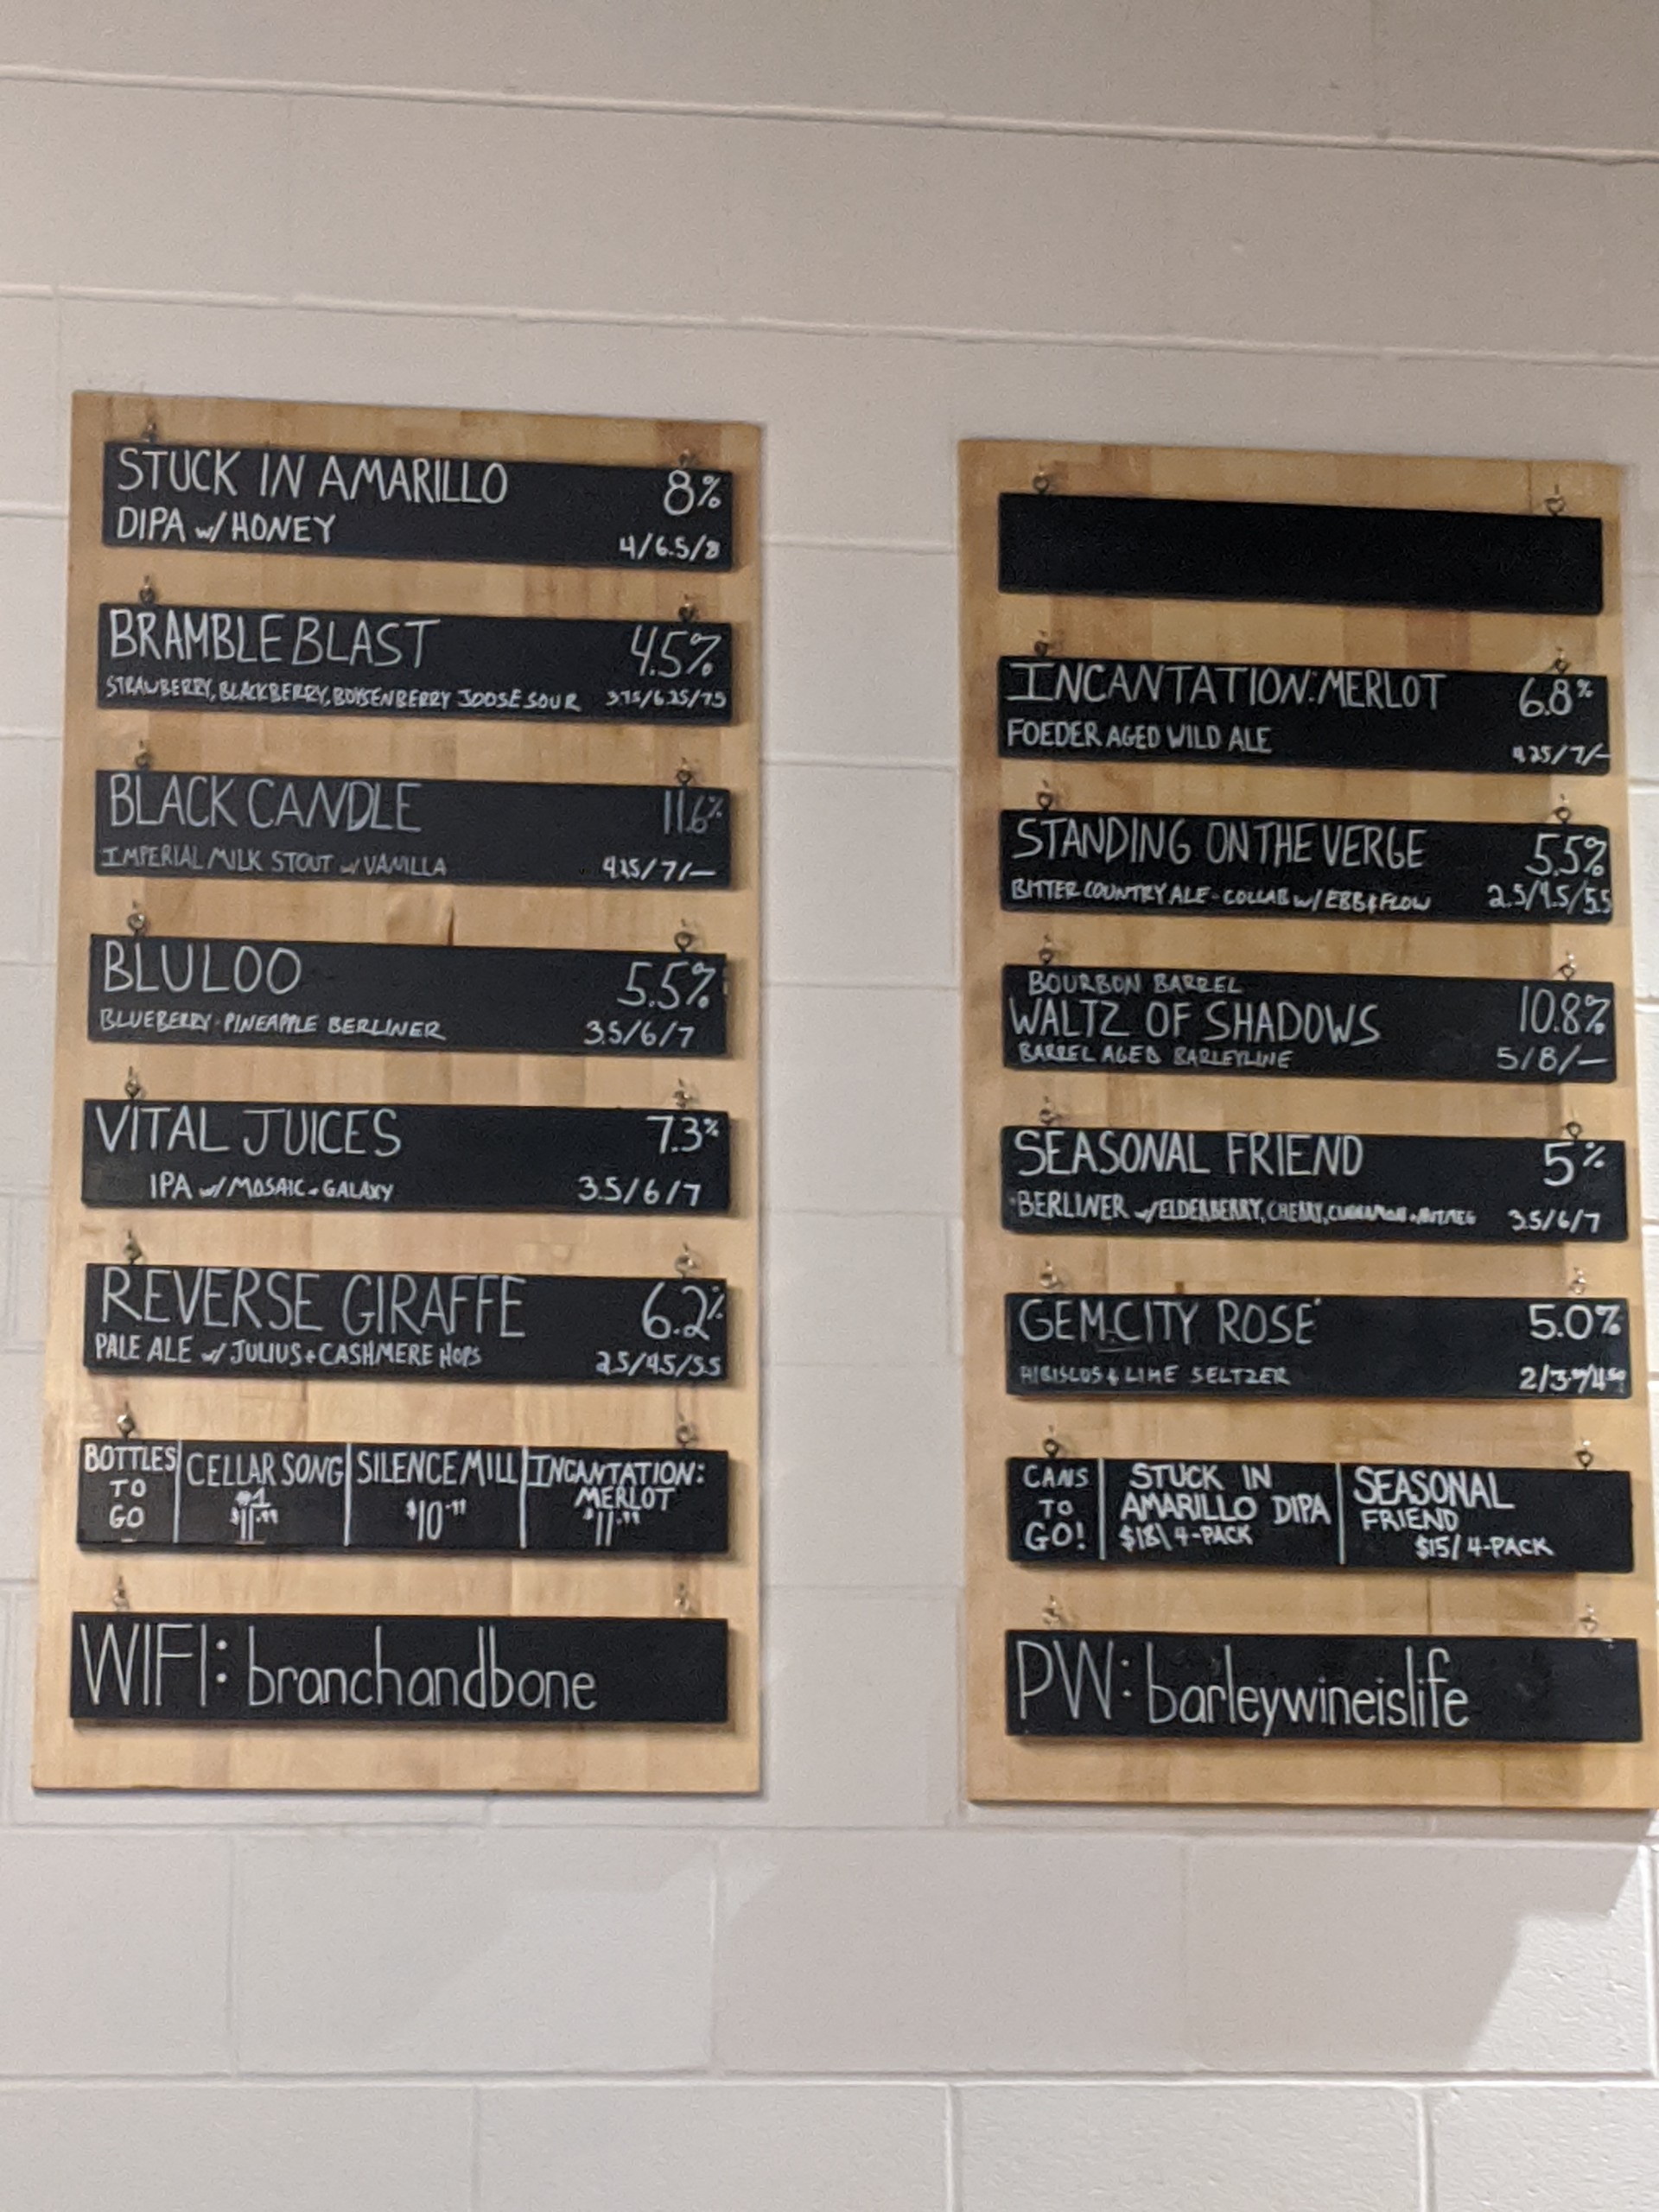 STUCK IN AMARILLO 8%
DIPA w/ HONEY 4/6.5/8
BRAMBLE BLAST 4.5%
STRAWBERRY, BLACKBERRY, BOYSENBERRY JOOSE SOUR 3.75/6.25/7.5
BLACK CANDLE 11.6%
IMPERIAL MILK STOUT w/ VANILLA 4.25/7/—
BLULOO 5.5%
BLUEBERRY·PINEAPPLE BERLINER 3.5/6/7
VITAL JUICES 7.3%
IPA w/ MOSAIC + GALAXY 3.5/6/7
REVERSE GIRAFFE 6.2%
PALE ALE w/ JULIUS + CASHMERE HOPS 2.5/4.5/5.5
BOTTLES TO GO
CELLAR SONG
#1
$11.99
SILENCE MILL
$10
INCANTATION:
MERLOT
$11.99
WIFI: branchandbone
INCANTATION: MERLOT 6.8%
FOEDER AGED WILD ALE 4.25/7/—
STANDING ON THE VERGE 5.5%
BITTER COUNTRY ALE - COLLAB w/ EBB & FLOW 2.5/4.5/5.5
BOURBON BARREL
WALTZ OF SHADOWS 10.8%
BARREL AGED 5/8/—
SEASONAL FRIEND 5%
BERLINER w/ ELDERBERRY, CHERRY, CINNAMON + NUTMEG 3.5/6/7
GEM CITY ROSÉ 5.0%
HIBISCUS & LIME SELTZER 2/3.50/4.50
CANS
TO
GO!
STUCK IN
AMARILLO DIPA
$18\ 4-PACK
SEASONAL
FRIEND
$15/ 4-PACK
PW: barleywineislife